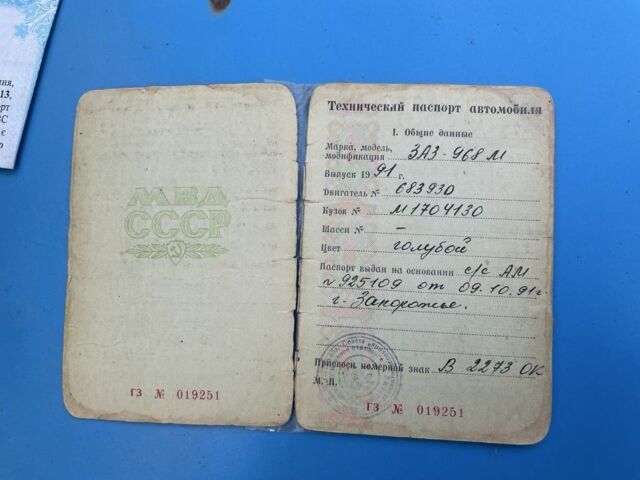 ня,
13,
орт
ЗС
є
о
МВД
СССР
ГЗ № 019251
Технический паспорт автомобиля
I. Общие данные
Марка, модель,
модификация ЗАЗ-968М
Выпуск 1991 г.
Двигатель № 683930
Кузов № М1704130
Шасси № –
Цвет голубой
Паспорт выдан на основании с/с АМ
№925109 от 09.10.91г.
г. Запорожье.
Присвоен номерной знак В 2273 ОК
М. П.
ГЗ № 019251